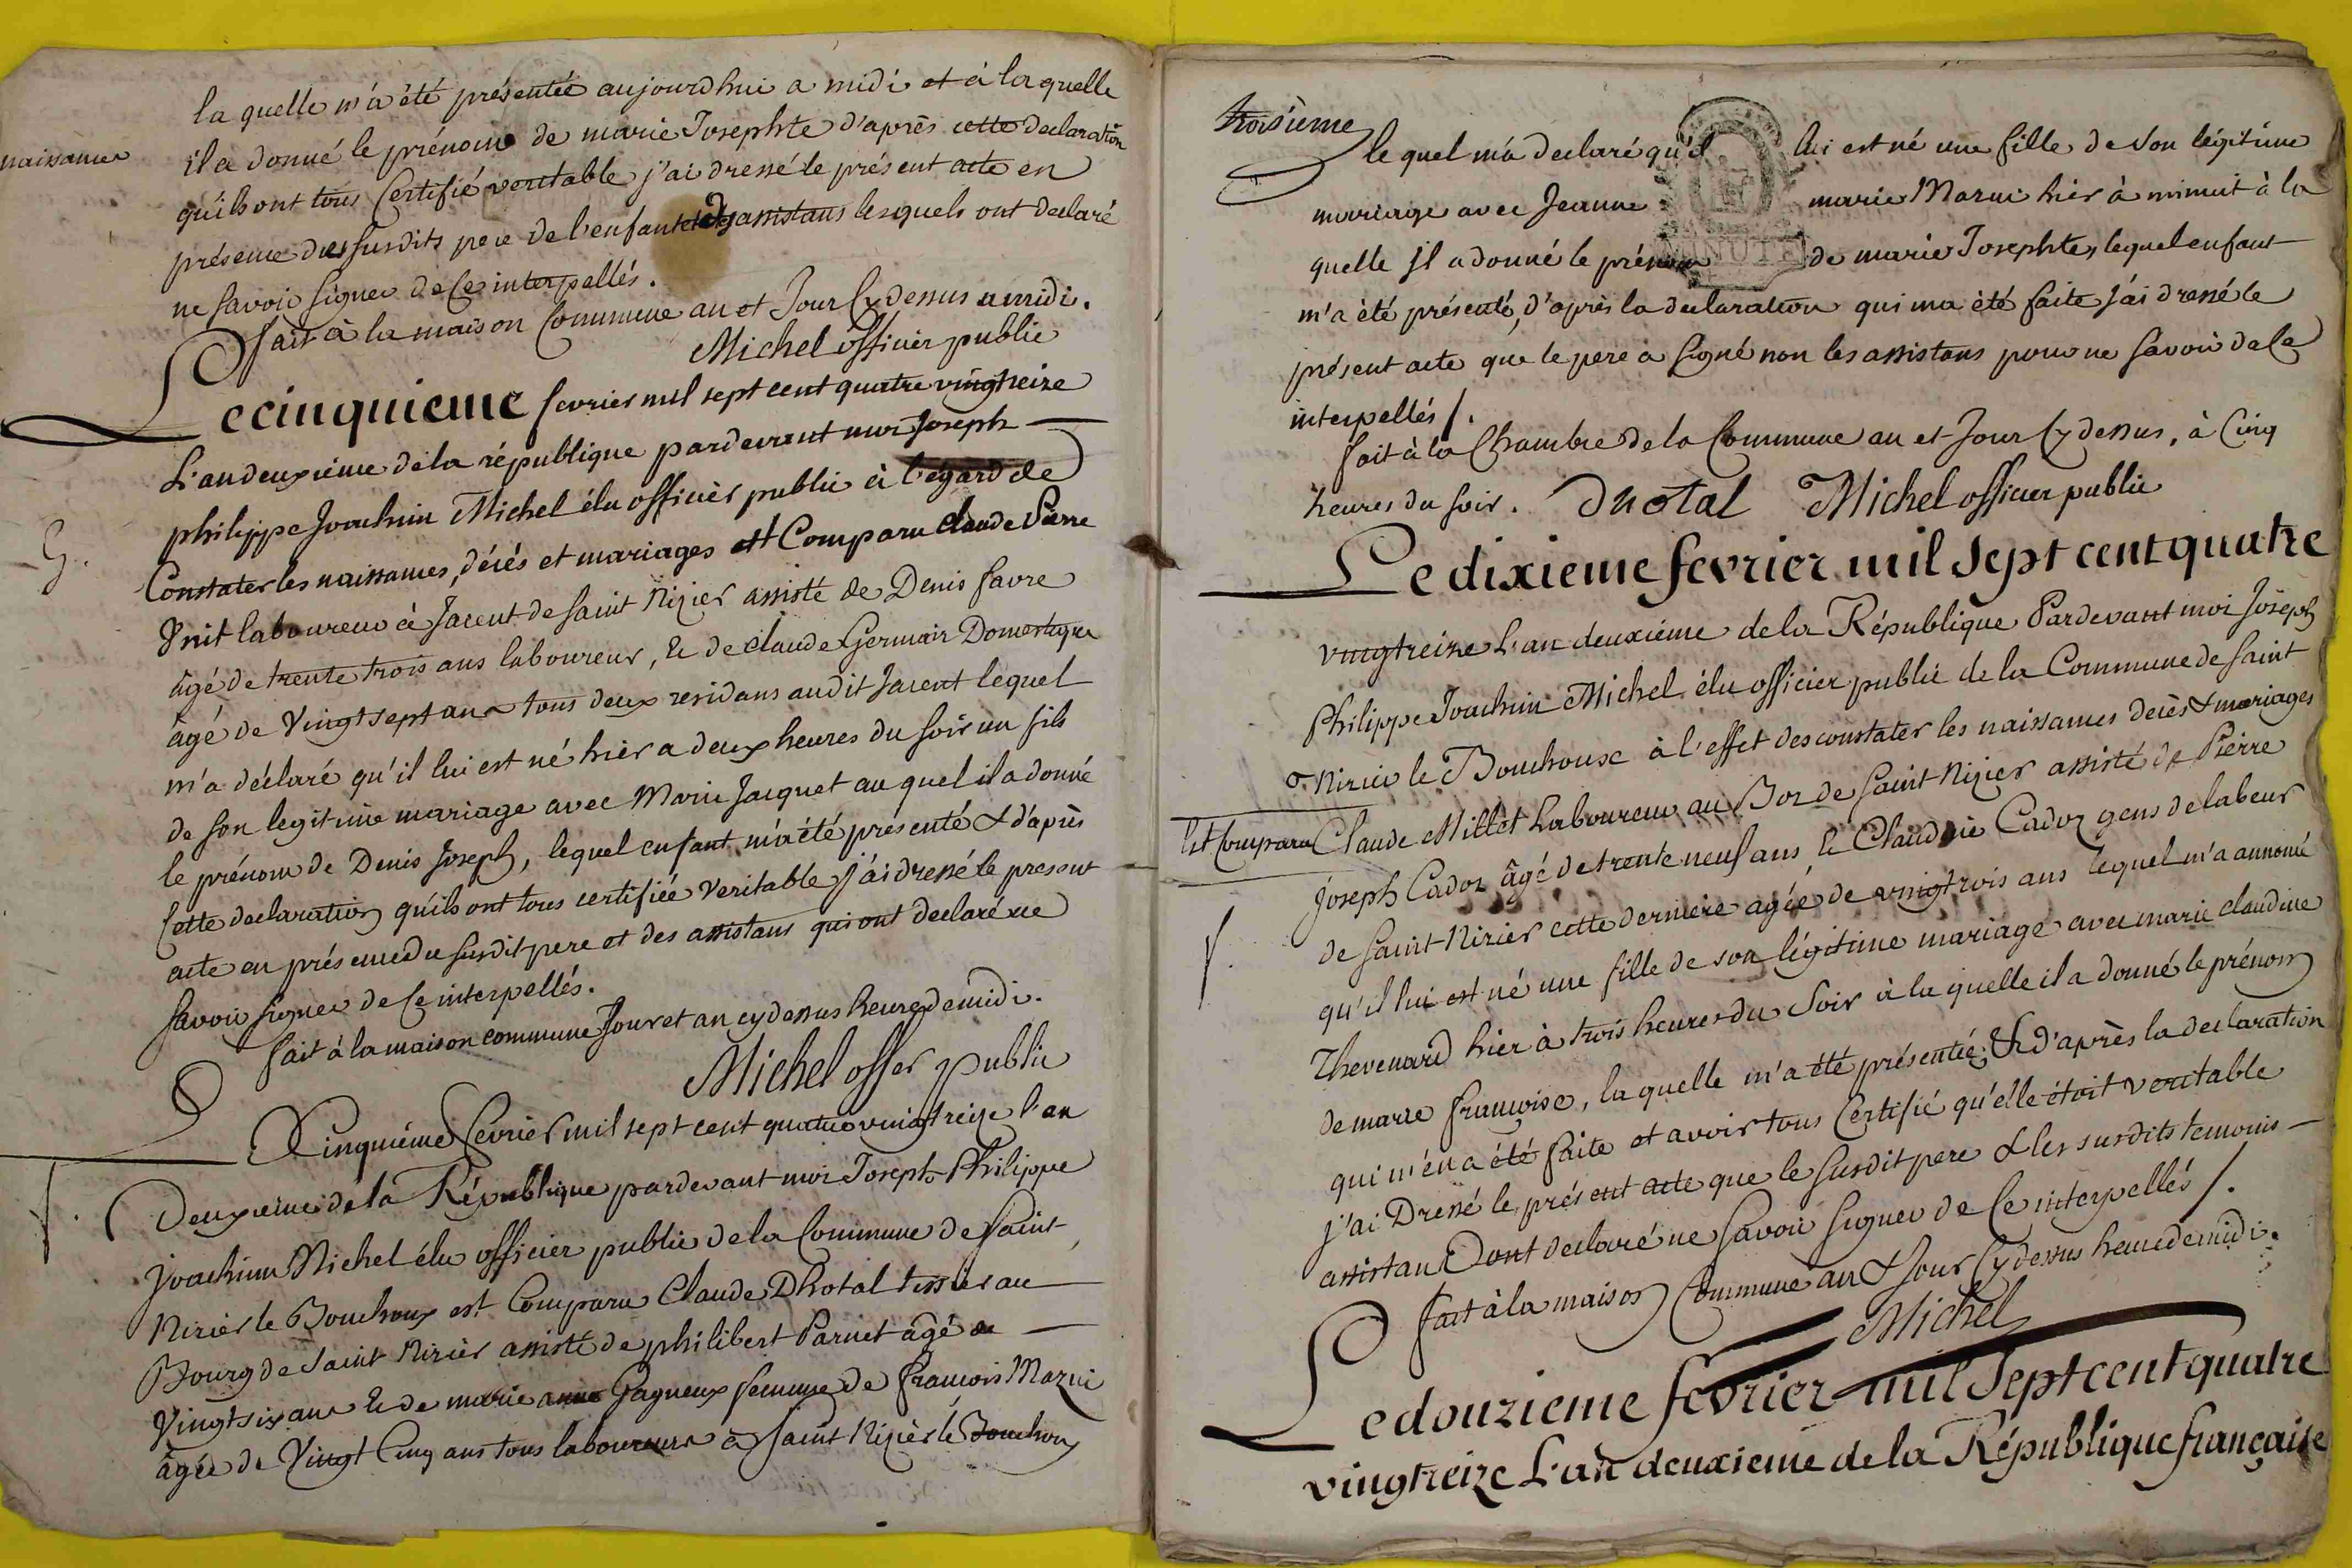 la quelle m'a été présentée aujourd'hui a midi et à laquelle
naissances
il a donné le prénom de marie Josephte d'après cette declaration
qu'ils ont tous Certifié veritable j'ai dressé le présent acte en
présence des susdits pere de l'enfant et des assistans lesquels ont declaré
ne savoir signer de ce interpellés.
fait à la maison Commune an et Jour Cy dessus a midi.
Michel officier public
Le cinquieme fevrier mil sept cent quatre vingtreize
L'an deuxieme de la république pardevant moi Joseph
philippe Joachim Michel élu officier public à l'égard de
Constater les naissances, décés et mariages est Comparu Claude Pierre
G.
laboureur à Jacent de saint Nizier assisté de Denis favre
âgé de trente trois ans laboureur, & de Claude Germain Domestique
âgé de Vingt sept ans tous deux residans audit Jacent lequel
m'a déclaré qu'il lui est né hier a deux heures du soir un fils
de son legitime mariage avec Marie Jacquet au quel il a donné
le prénom de Denis Joseph, lequel enfant m'a été présenté & d'après
Cette declaration qu'ils ont tous certifiée veritable j'ai dressé le present
acte en présence du susdit pere et des assistans qui ont declaré ne
savoir signer de Ce interpellés.
fait à la maison commune Jour et an cy dessus heure de midi.
Michel offer public
Cinquiéme fevrier mil sept cent quatre vingtreize l'an
f.
Deuxieme de la République pardevant moi Joseph Philippe
Joachim Michel élu officier public de la Commune de Saint
Nizier le Bouchoux est Comparu Claude Dhotal tissier au
Bourg de Saint Nizier assisté de philibert Parnet âgé de
Vingt six ans & de marie anne Gagneux femme de francois Mazui
âgée de Vingt Cinq ans tous laboureurs à Saint Nizier le Bouchoux
troisieme
le quel m'a declaré qu'il lui est né une fille de son légitime
mariage avec Jeanne marie Mazui hier à minuit à la
quelle Il a donné le prénom de marie Josephte, lequel enfant
MINUTE
m'a été présenté, d'après la declaration qui m'a été faite j'ai dressé le
présent acte que le pere a signé non les assistans pour ne savoir de ce
interpellés /.
fait à la Chambre de la Commune an et Jour Cy dessus, à Cinq
heures du soir. Duotal Michel officier public
Le dixieme fevrier mil sept cent quatre
vingtreize L'an deuxiéme de la République Pardevant moi Joseph
Philippe Joachim Michel élu officier public de la Commune de Saint
Nizier le Bouchoux à l'effet des constater les naissances decès & mariages
est Comparu Claude Millet laboureur au Boz de Saint Nizier assisté de Pierre
Joseph Cadoz âgé de trente neuf ans & Claudine Cadoz gens de labeur
f.
de Saint Nizier cette derniere agée de vingtrois ans lequel m'a annoncé
qu'il lui est né une fille de son légitime mariage avec marie claudine
Thevenard hier à trois heures du Soir à la quelle il a donné le prénom
de marie françoise, la quelle m'a été présentée, & d'après la declaration
qui m'en a été faite et avoir tous Certifié qu'elle étoit veritable
j'ai Dressé le présent acte que le susdit pere & les susdits temoins
assistans Dont declaré ne savoir signer de Ce interpellés /.
fait à la maison Commune an & Jour Cy dessus heure de midi.
Michel
Le douzieme fevrier mil Sept cent quatre
vingtreize L'an deuxieme de la République française